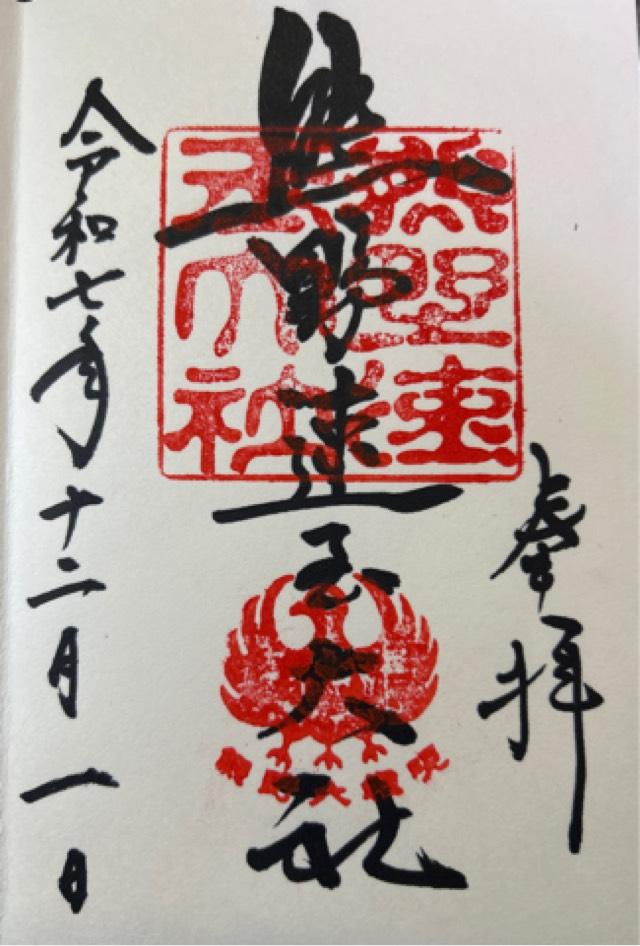 奉拝
熊野速玉大社
熊野速玉大社
令和七年十二月一日